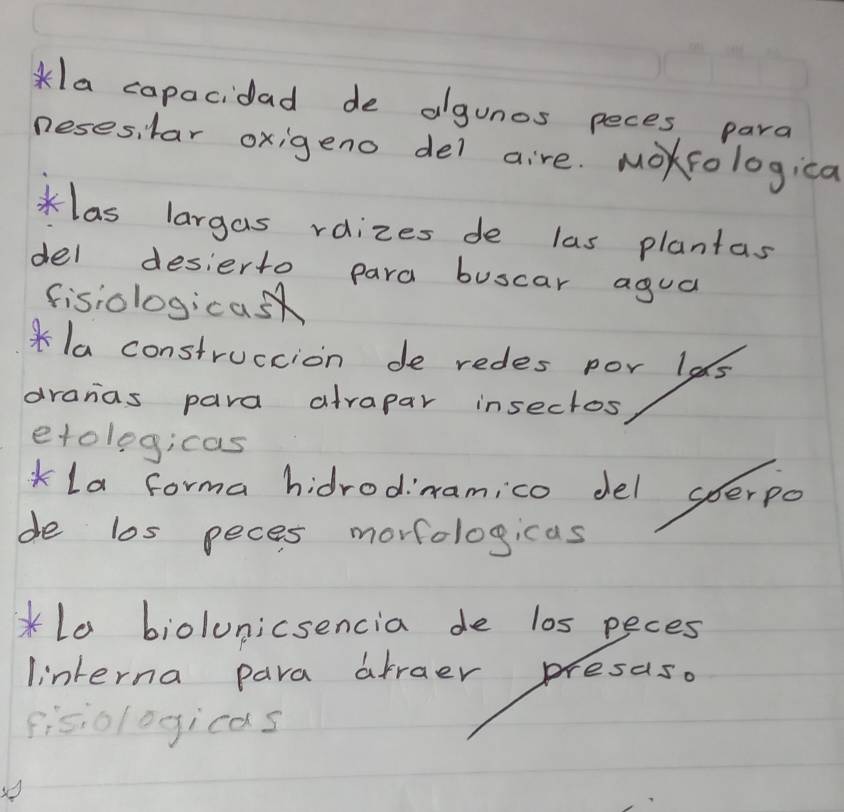 *la capacidad de algunos peces para
nesesitar oxigeno del aire. Morfologica
*las largas raizes de las plantas
del desierto para buscar agua
fisiologicas
*la construcción de redes por las
arañas para atrapar insectos
etologicas
*La forma hidrodinamico del coerpo
de los peces morfologicas
*La biolunicsencia de los peces
linterna para atraer presas.
fisiologicas